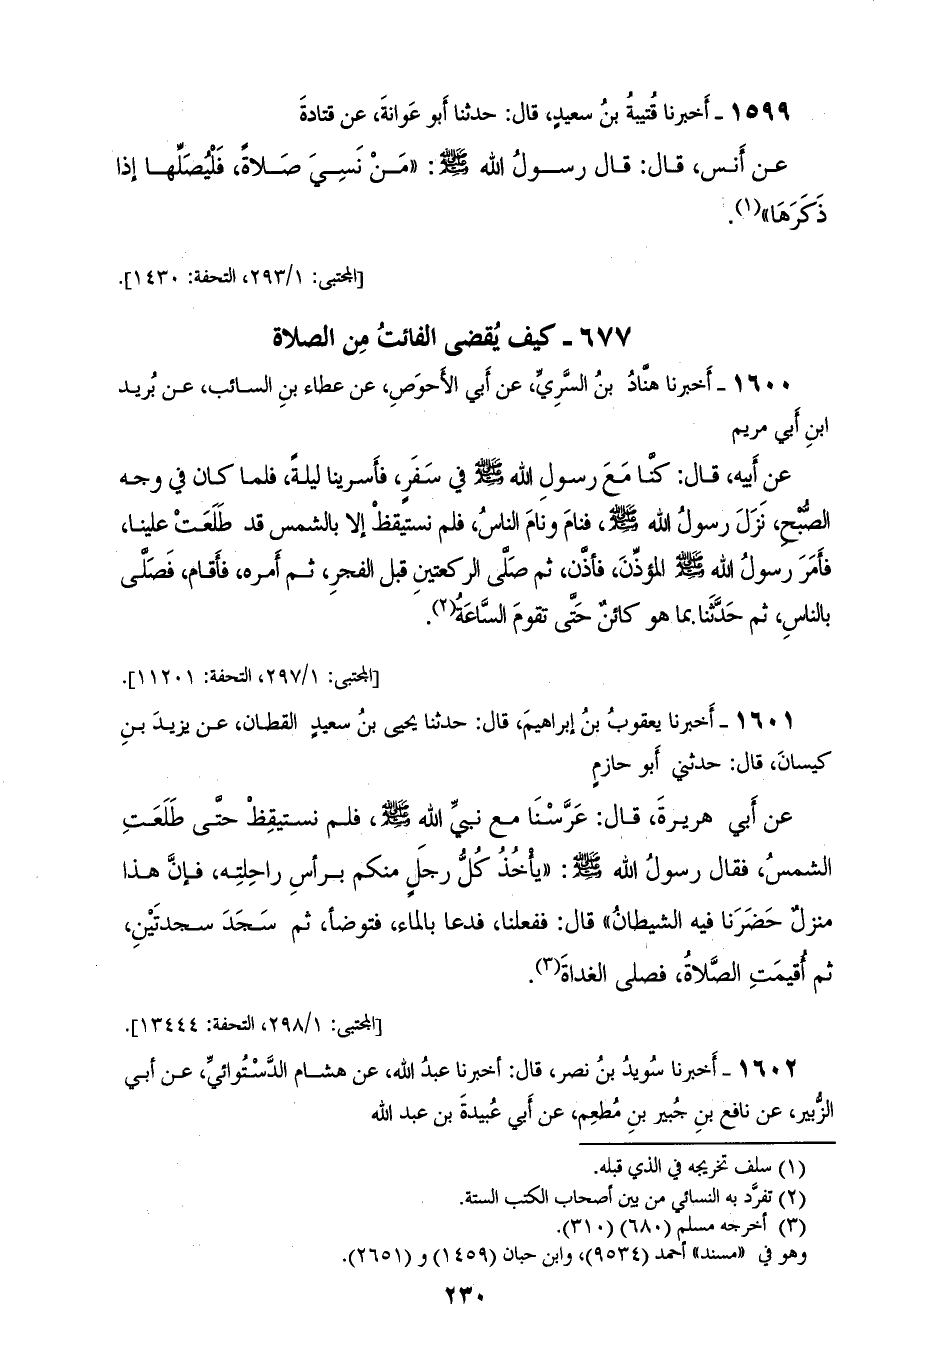 ١٥٩٩ ـ أَخبرنا قُتيبةُ بنُ سعيدٍ، قال: حدثنا أَبو عَوانةَ، عن قتادةَ
عـن أَنـس، قـال: قـال رسـولُ الله ﷺ: «مَـنْ نَسِـيَ صَـلاةً، فَلْيُصَلِّهـا إذا
ذَكَرَهَا»(١).
[المجتبى: ٢٩٣/١، التحفة: ١٤٣٠].
٦٧٧ ـ كيف يُقضى الفائتُ مِن الصلاة
١٦٠٠ ـ أَخبرنا هنَّادُ بنُ السَّرِيِّ، عن أَبي الأَحوَصِ، عن عطاء بنِ السائب، عـن بُريـد
ابنِ أَبي مريم
عن أَبيه، قـال: كنَّـا مَـعَ رسـولِ الله ﷺ في سَـفَرٍ، فأَسرينا ليلـةً، فلمـا كـان في وجـه
الصُّبْحِ، نَزَلَ رسولُ الله ﷺ، فنامَ ونامَ الناسُ، فلم نستيقظْ إلا بالشمس قد طَلَعَتْ علينـا،
فأَمَرَ رسولُ الله ﷺ المؤذِّنَ، فأذَّن، ثم صلَّى الركعتينِ قبل الفجرِ، ثـم أمره، فأَقام، فَصَلَّـى
بالناسِ، ثم حَدَّثَنا بما هو كائنٌ حَتَّى تقومَ السَّاعَةُ(٢).
[المجتبى: ٢٩٧/١، التحفة: ١١٢٠١].
١٦٠١ ـ أَخبرنا يعقوبُ بنُ إبراهيمَ، قال: حدثنا يحيى بنُ سعيدٍ القطان، عـن يزيـدَ بـنِ
كيسانَ، قال: حدثني أَبو حازمٍ
عن أَبي هريـرةَ، قـال: عَرَّسْـنَا مـع نبـيِّ الله ﷺ، فلـم نسـتيقِظْ حتَّـى طَلَعَـتِ
الشمسُ، فقال رسولُ الله ﷺ: «يأْخُذُ كُلُّ رجلٍ منكم بـرأسِ راحِلتِـه، فـإنَّ هـذا
منزلٌ حَضَرَنا فيه الشيطانُ» قال: ففعلنا، فدعا بالماء، فتوضأ، ثم سَـجَدَ سـجدتَيْنِ،
ثم أُقيمَتِ الصَّلاةُ، فصلى الغداةَ(٣).
[المجتبى: ٢٩٨/١، التحفة: ١٣٤٤٤].
١٦٠٢ ـ أَخبرنا سُويدُ بنُ نصر، قال: أخبرنا عبدُ الله، عن هشـام الدَّسْتُوائيِّ، عـن أبـي
الزُّبير، عن نافع بنِ جُبير بنِ مُطعِم، عن أَبي عُبيدةَ بن عبد الله
(١) سلف تخريجه في الذي قبله.
(٢) تفرَّد به النسائي من بين أصحاب الكتب الستة.
(٣) أخرجه مسلم (٦٨٠) (٣١٠).
وهو في «مسند» أحمد (٩٥٣٤)، وابن حبان (١٤٥٩) و (٢٦٥١).
٢٣٠